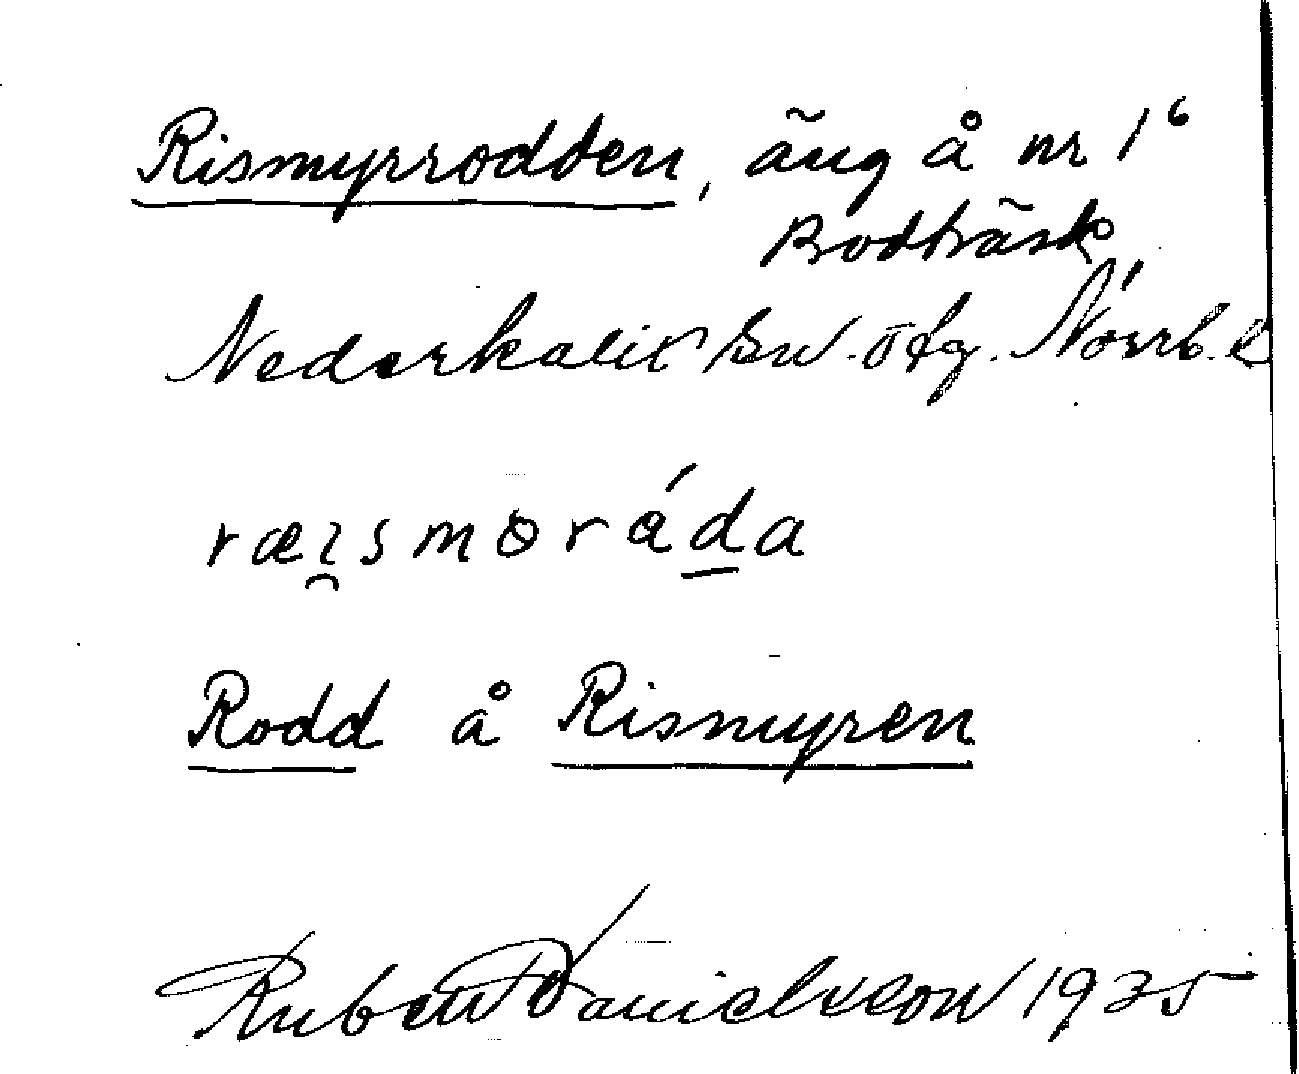 Rismyrrodden, äng å nr 1⁶
Bodträsk
Nederkalix sn. ofg. Norrb. l
ræi̯smøråda
Rodd å Rismyren
Ruben Danielsson 1935